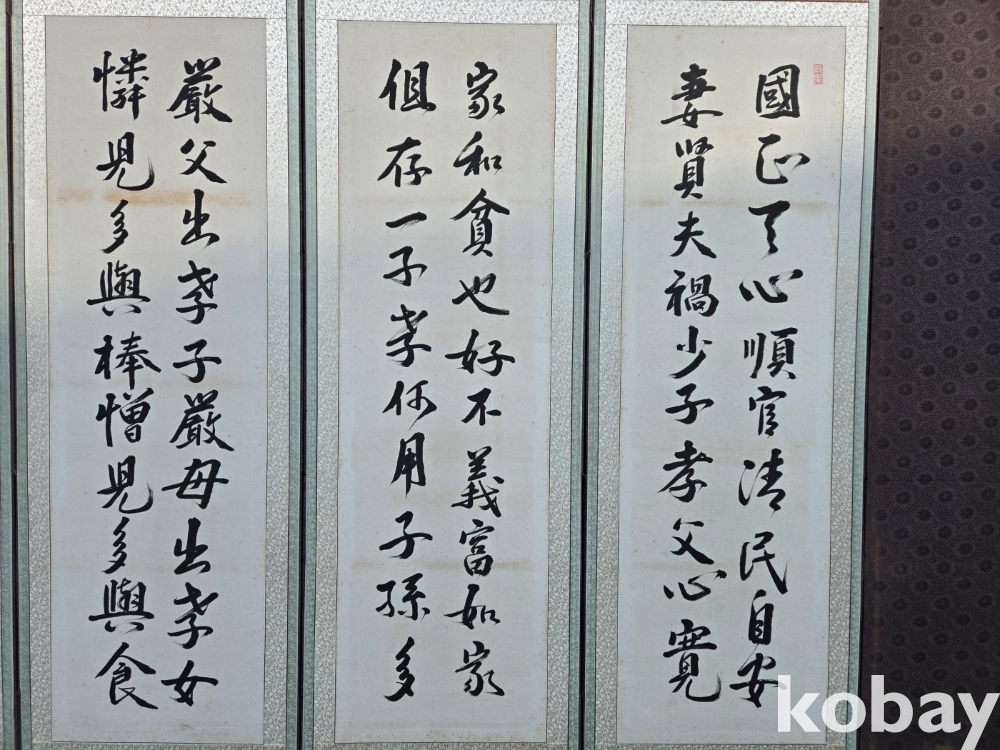 國正天心順官清民自安
妻賢夫禍少子孝父心寬
家和貧也好不義富如家
但存一子孝何用子孫多
嚴父出孝子嚴母出孝女
憐兒多與棒憎兒多與食
kobay